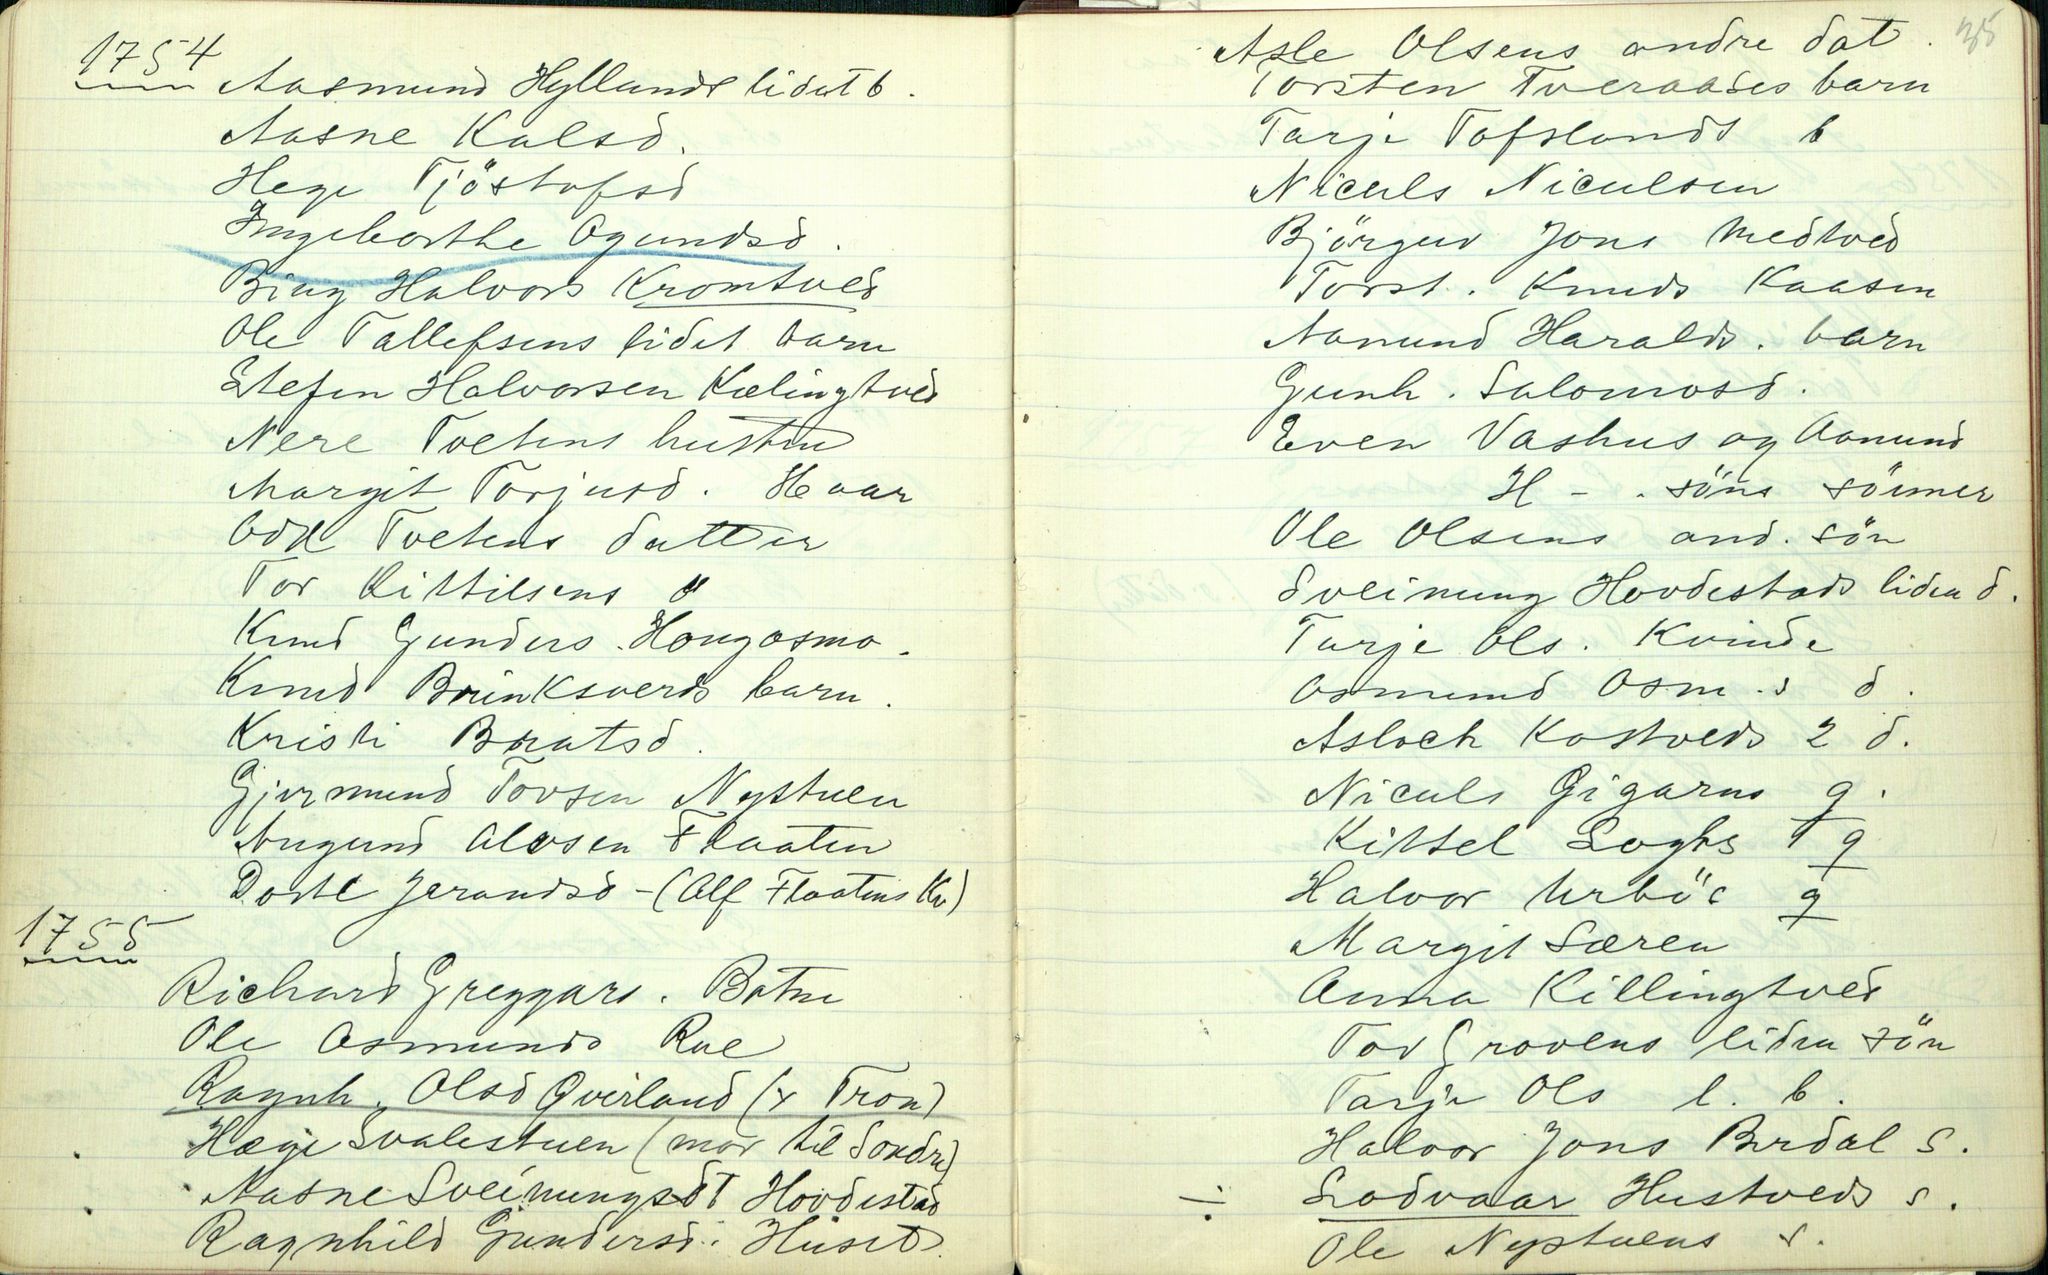 1754
Aasmund Hyllands lidet b.
Aasne Kalsd.
Hege Tjöstofsd
Ingeborthe Ogundsd.
Biug Halvors Kromtved
Ole Tallefsens lidet barn
Stefen Halvorsen Kælingtved
Nere Tvetens hustru
Margit Torjusd. Haar
Odd Tvetens datter
Tor Kittilsens "
Knud Gunders. Hougosmo.
Knud Brinksverds barn.
Kristi Bratsd.
Gjermund Tovsen Nystuen
Augund Alvsen Flaaten
Dorte Jerandsd - (Alf Flaatens Kv)
1755
Richard Greggars. Botne
Ole Osmunds Rue
Ragnh. Olsd Qverland (x Tron)
Hæge Svalestuen (mor til Sondre)
Aasne Sveinungsdt Hovdestad
Ragnhild Gundersd: Huset
35
Asle Olsens andre dat.
Torsten Tveraades barn
Tarje Tofslands b
Niculs Niculsen
Björguv Jons Medtved
Torst. Knuds Kaasen
Aanund Haralds. barn
Gunh. Salomosd.
Even Vashus og Aanund
H - . söns sönner
Ole Olsens and. sön
Sveinung Hovdestads liden d.
Tarje Ols. Kvinde
Osmund Osm.s d.
Asloch Kostveds 2 d.
Niculs Gigarns q.
Kittel Loghs 1 q
Halvor Urböe q
Margit Særen
Anna Killingtved
Tov Grovens liden sön
Tarje Ols l. b.
Halvor Jons Berdal s.
÷ Lodvaar Hustveds s.
Ole Nystuens s.